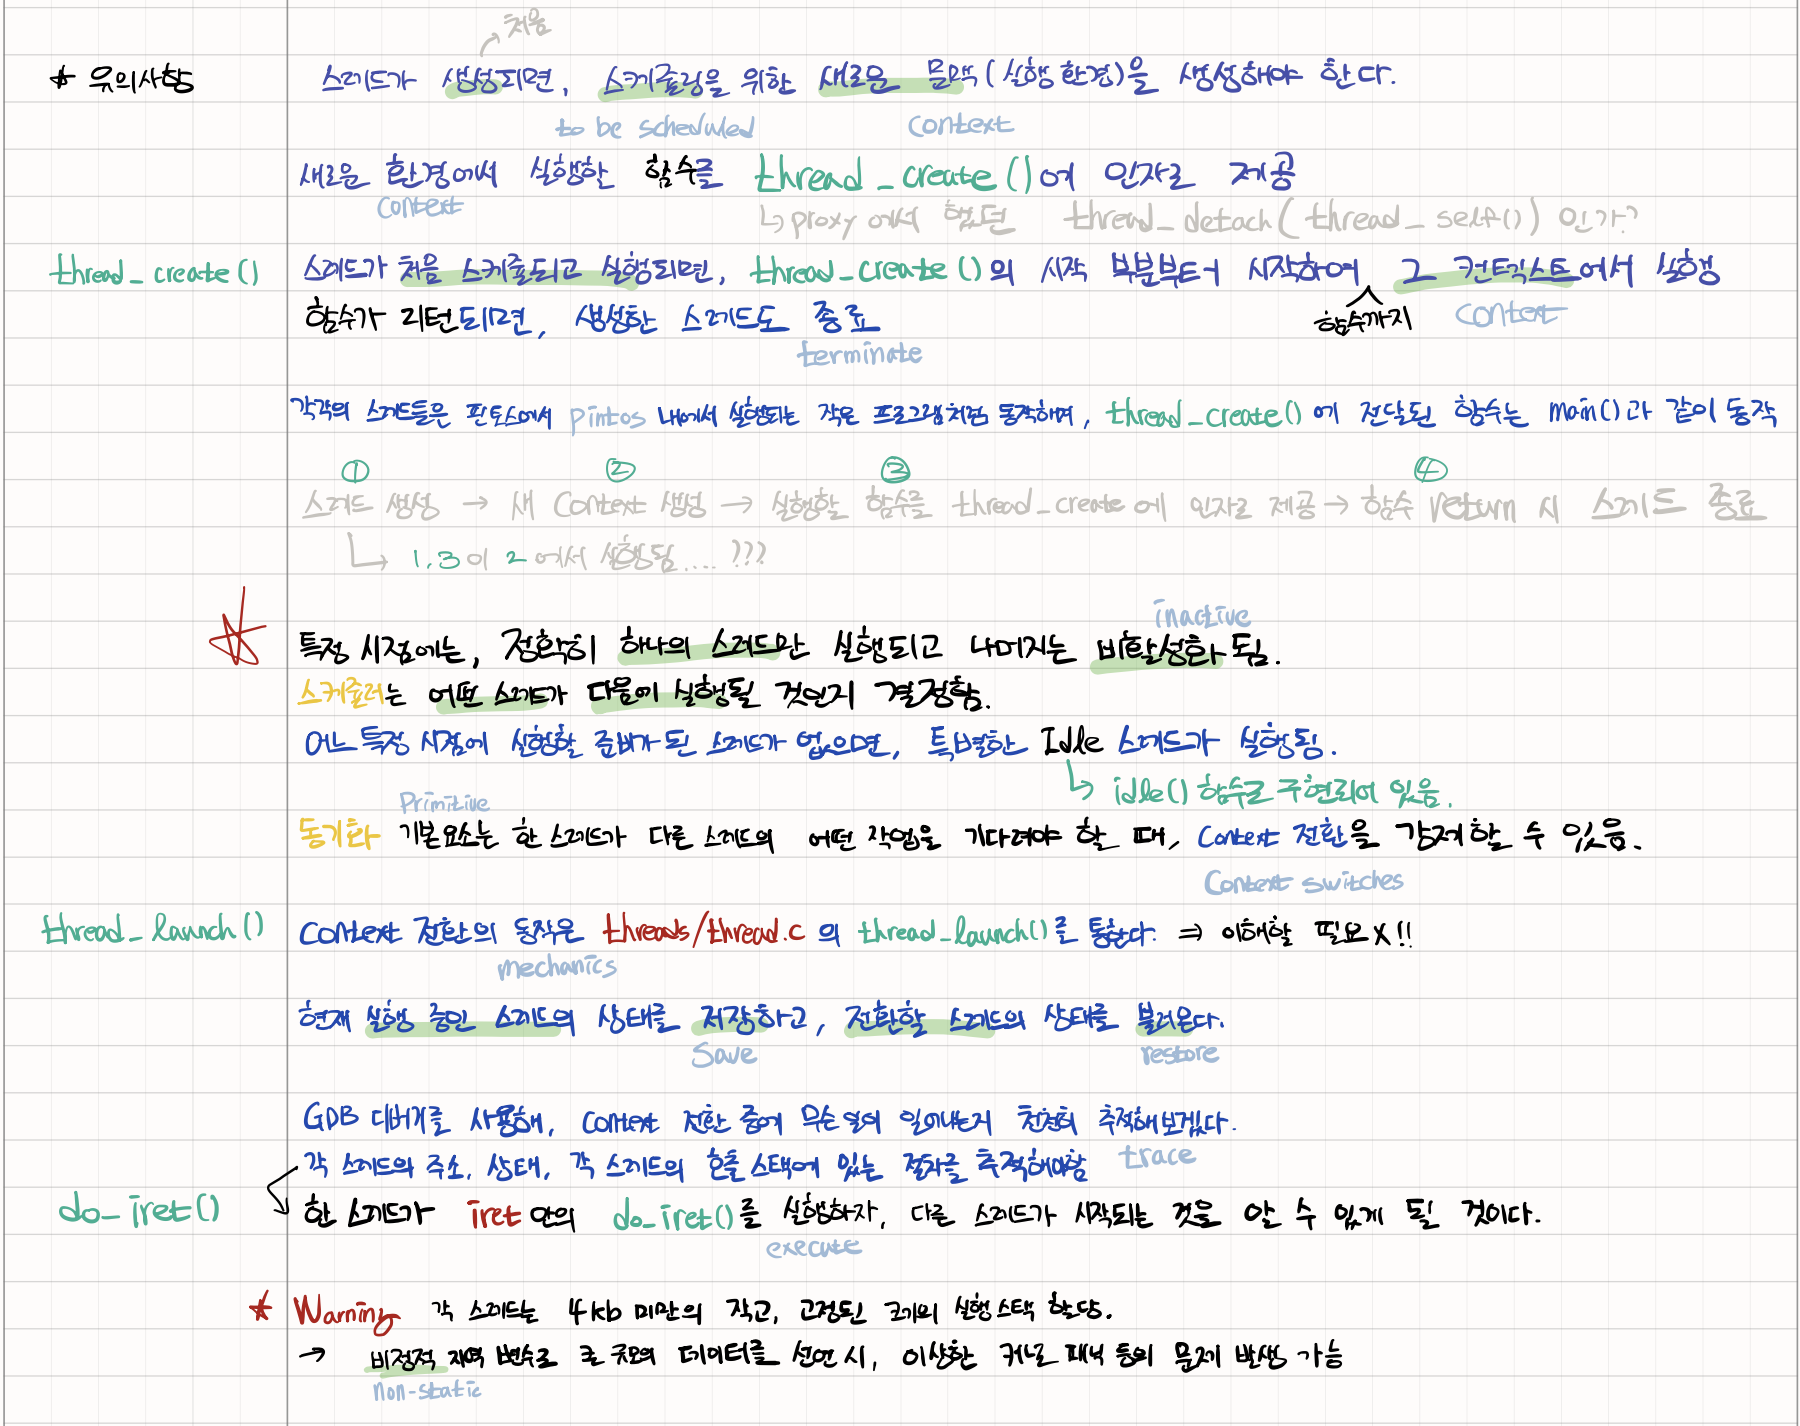 처음
* 유의사항 스레드가 생성되면, 스케줄링을 위한 새로운 문맥(실행 환경)을 생성해야 한다.
to be scheduled context
새로운 환경에서 실행할 함수를 thread_create()에 인자로 제공
context ↳proxy에서 했던 thread_detach(thread_self()) 인가?
thread_create() 스레드가 처음 스케줄되고 실행되면, thread_create()의 시작 부분부터 시작하여 그 컨텍스트에서 실행
함수가 리턴되면, 생성한 스레드도 종료 함수까지 context
terminate
각각의 스레드들은 핀토스에서 pintos 내에서 실행되는 작은 프로그램처럼 동작하며, thread_create()에 전달된 함수는 main()과 같이 동작
① ② ③ ④
스레드 생성 → 새 Context 생성 → 실행할 함수를 thread_create에 인자로 제공 → 함수 return 시 스레드 종료
↳ 1,3이 2에서 실행됨.... ???
inactive
특정 시점에는, 정확히 하나의 스레드만 실행되고 나머지는 비활성화 됨.
스케줄러는 어떤 스레드가 다음에 실행될 것인지 결정함.
어느 특정 시점에 실행할 준비가 된 스레드가 없으면, 특별한 Idle 스레드가 실행됨.
↳ idle() 함수로 구현되어 있음.
Primitive
동기화 기본요소는 한 스레드가 다른 스레드의 어떤 작업을 기다려야 할 때, Context 전환을 강제할 수 있음.
Context switches
thread_launch() Context 전환의 동작은 threads/thread.c의 thread_launch()를 통한다. ⇒ 이해할 필요 X!!
mechanics
현재 실행 중인 스레드의 상태를 저장하고, 전환할 스레드의 상태를 불러온다.
Save restore
GDB 디버거를 사용해, Context 전환 중에 무슨 일이 일어나는지 천천히 추적해보겠다.
각 스레드의 주소, 상태, 각 스레드의 호출 스택에 있는 절차를 추적해야함 trace
do_iret() 한 스레드가 iret 안의 do_iret()를 실행하자, 다른 스레드가 시작되는 것을 알 수 있게 될 것이다.
execute
* Warning 각 스레드는 4kb 미만의 작고, 고정된 크기의 실행 스택 할당.
→ 비정적 지역 변수로 큰 규모의 데이터를 선언 시, 이상한 커널 패닉 등의 문제 발생 가능
non-static